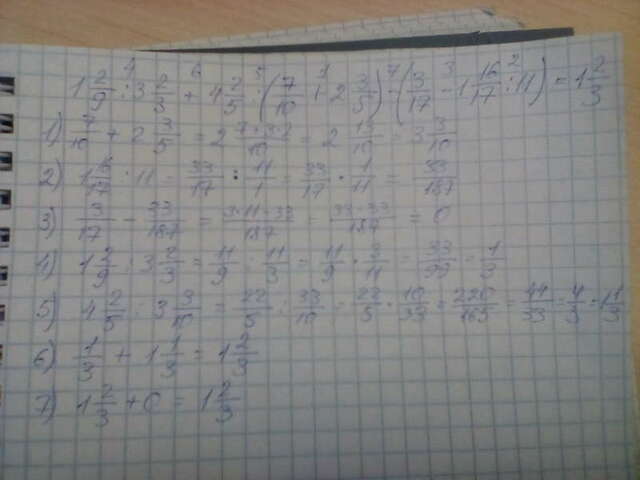 4 6 5 1 7 3 2
1 2/9 : 3 2/3 + 4 2/5 : (7/10 + 2 3/5) + (3/17 - 1 16/17 : 11) = 1 2/3
1) 7/10 + 2 3/5 = 2 7+3·2/10 = 2 13/10 = 3 3/10
2) 1 16/17 : 11 = 33/17 : 11/1 = 33/17 · 1/11 = 33/187
3) 3/17 - 33/187 = 3·11-33/187 = 33-33/187 = 0
4) 1 2/9 : 3 2/3 = 11/9 : 11/3 = 11/9 · 3/11 = 33/99 = 1/3
5) 4 2/5 : 3 3/10 = 22/5 : 33/10 = 22/5 · 10/33 = 220/165 = 44/33 = 4/3 = 1 1/3
6) 1/3 + 1 1/3 = 1 2/3
7) 1 2/3 + 0 = 1 2/3